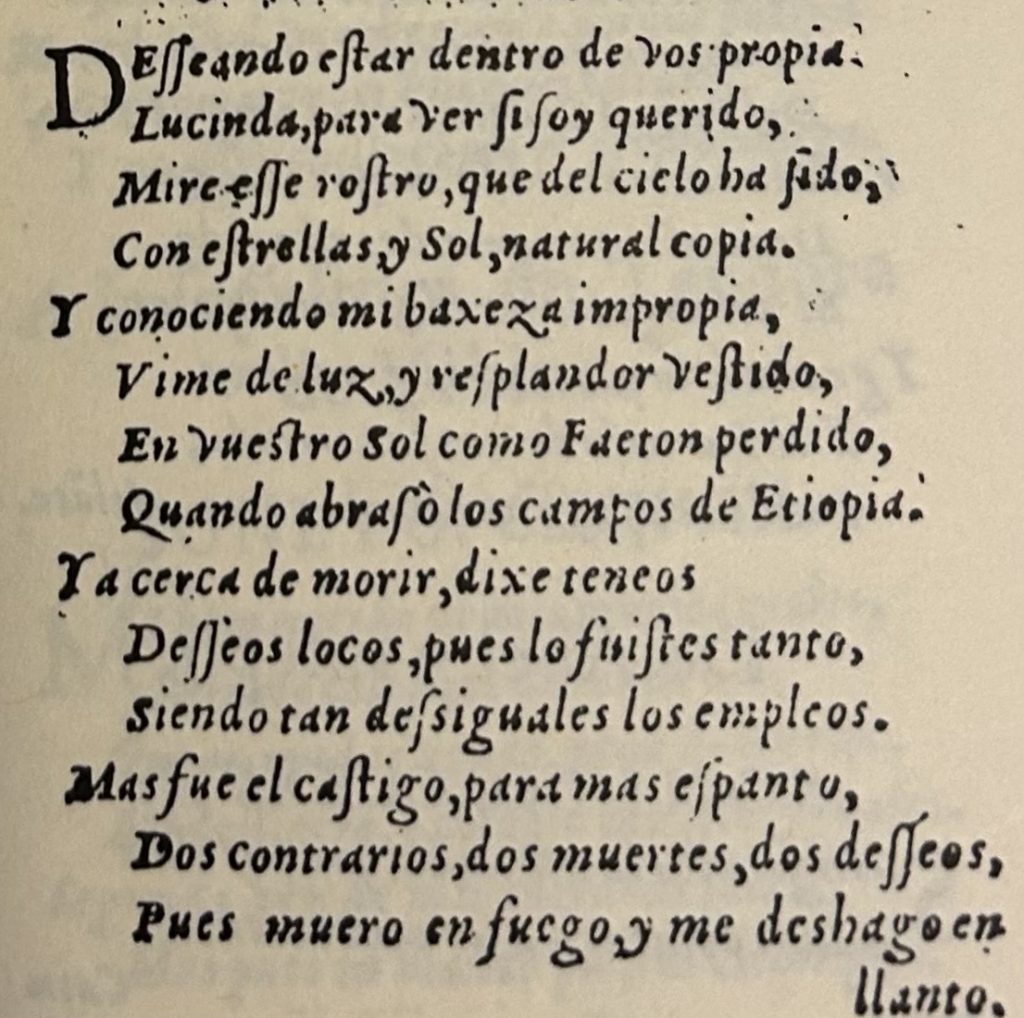 DEſſeando eſtar dentro de vos propia.
Lucinda, para ver ſi ſoy querido,
Mire eſſe roſtro, que del cielo ha ſido,
Con eſtrellas, y Sol, natural copia.
Y conociendo mi baxeza impropia,
Vime de luz, y reſplandor veſtido,
En vueſtro Sol como Faeton perdido,
Quando abraſò los campos de Etiopia.
Ya cerca de morir, dixe teneos
Deſſeos locos, pues lo fuiſtes tanto,
Siendo tan deſsiguales los empleos.
Mas fue el caſtigo, para mas eſpanto,
Dos contrarios, dos muertes, dos deſſeos,
Pues muero en fuego, y me deshago en
llanto.